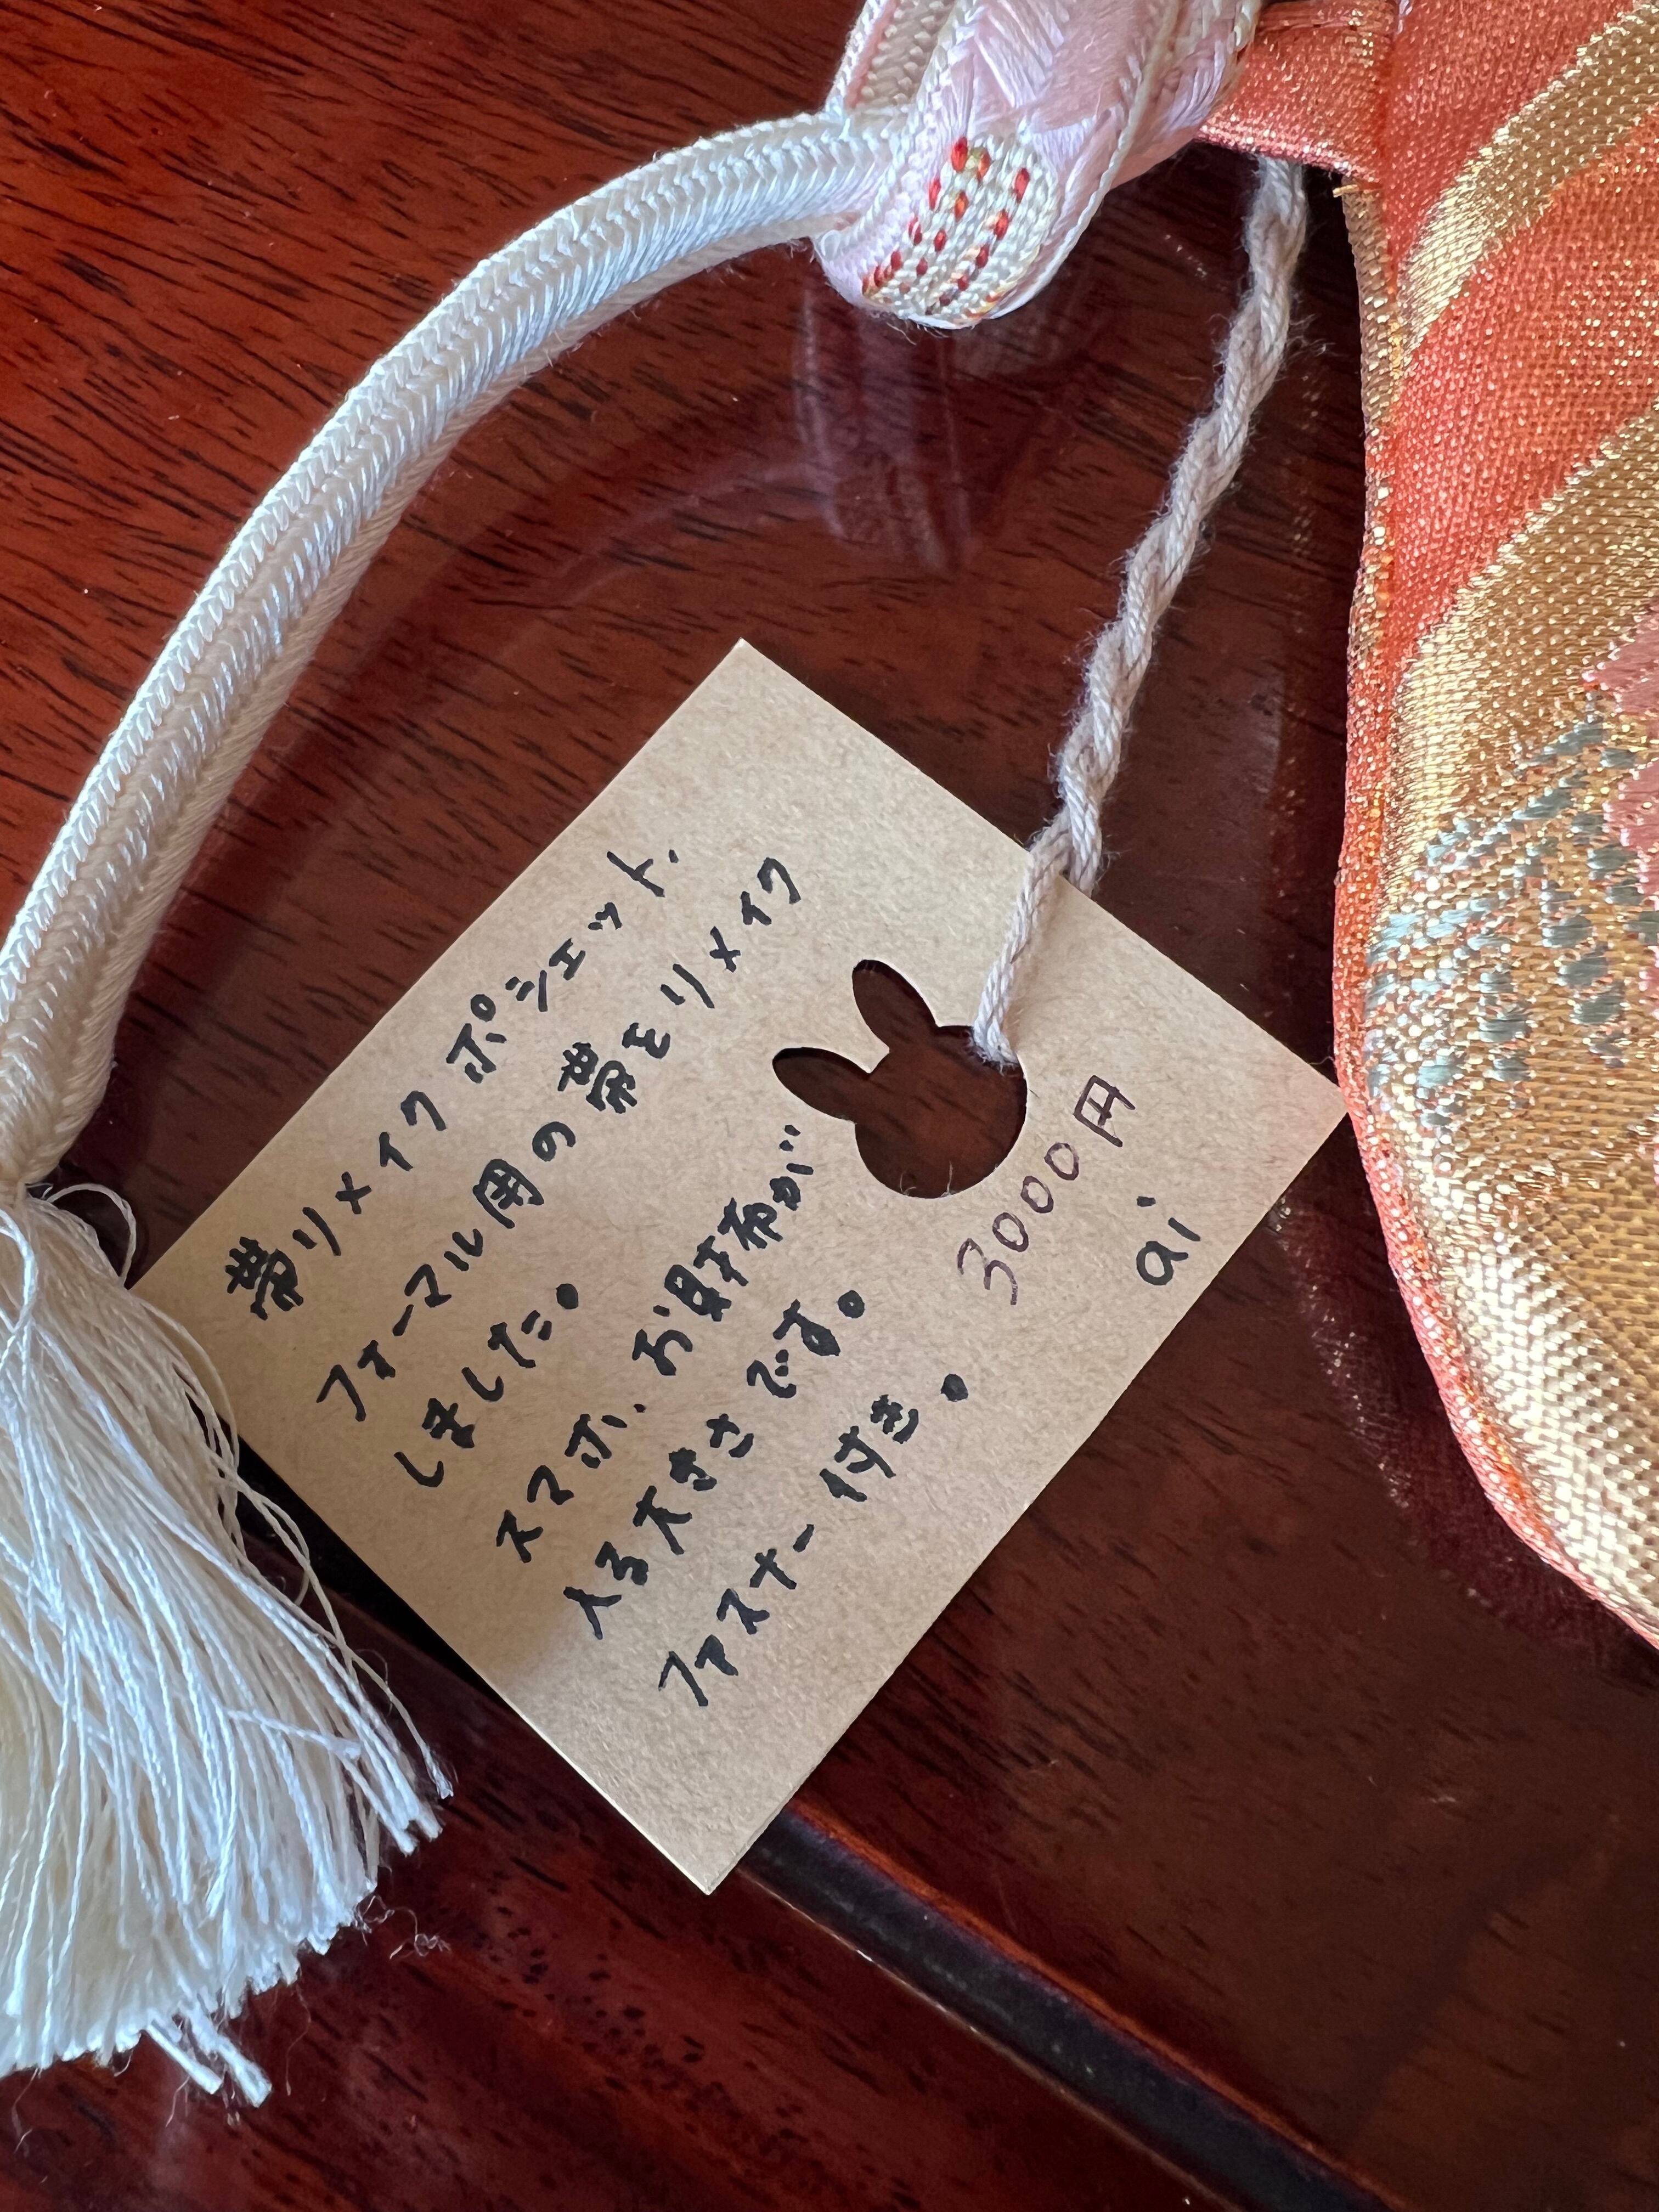 帯リメイクポシェット.
フォーマル用の帯をリメイク
しました。
スマホ、お財布が
入る大きさです。
ファスナー付き。
3000円
ai